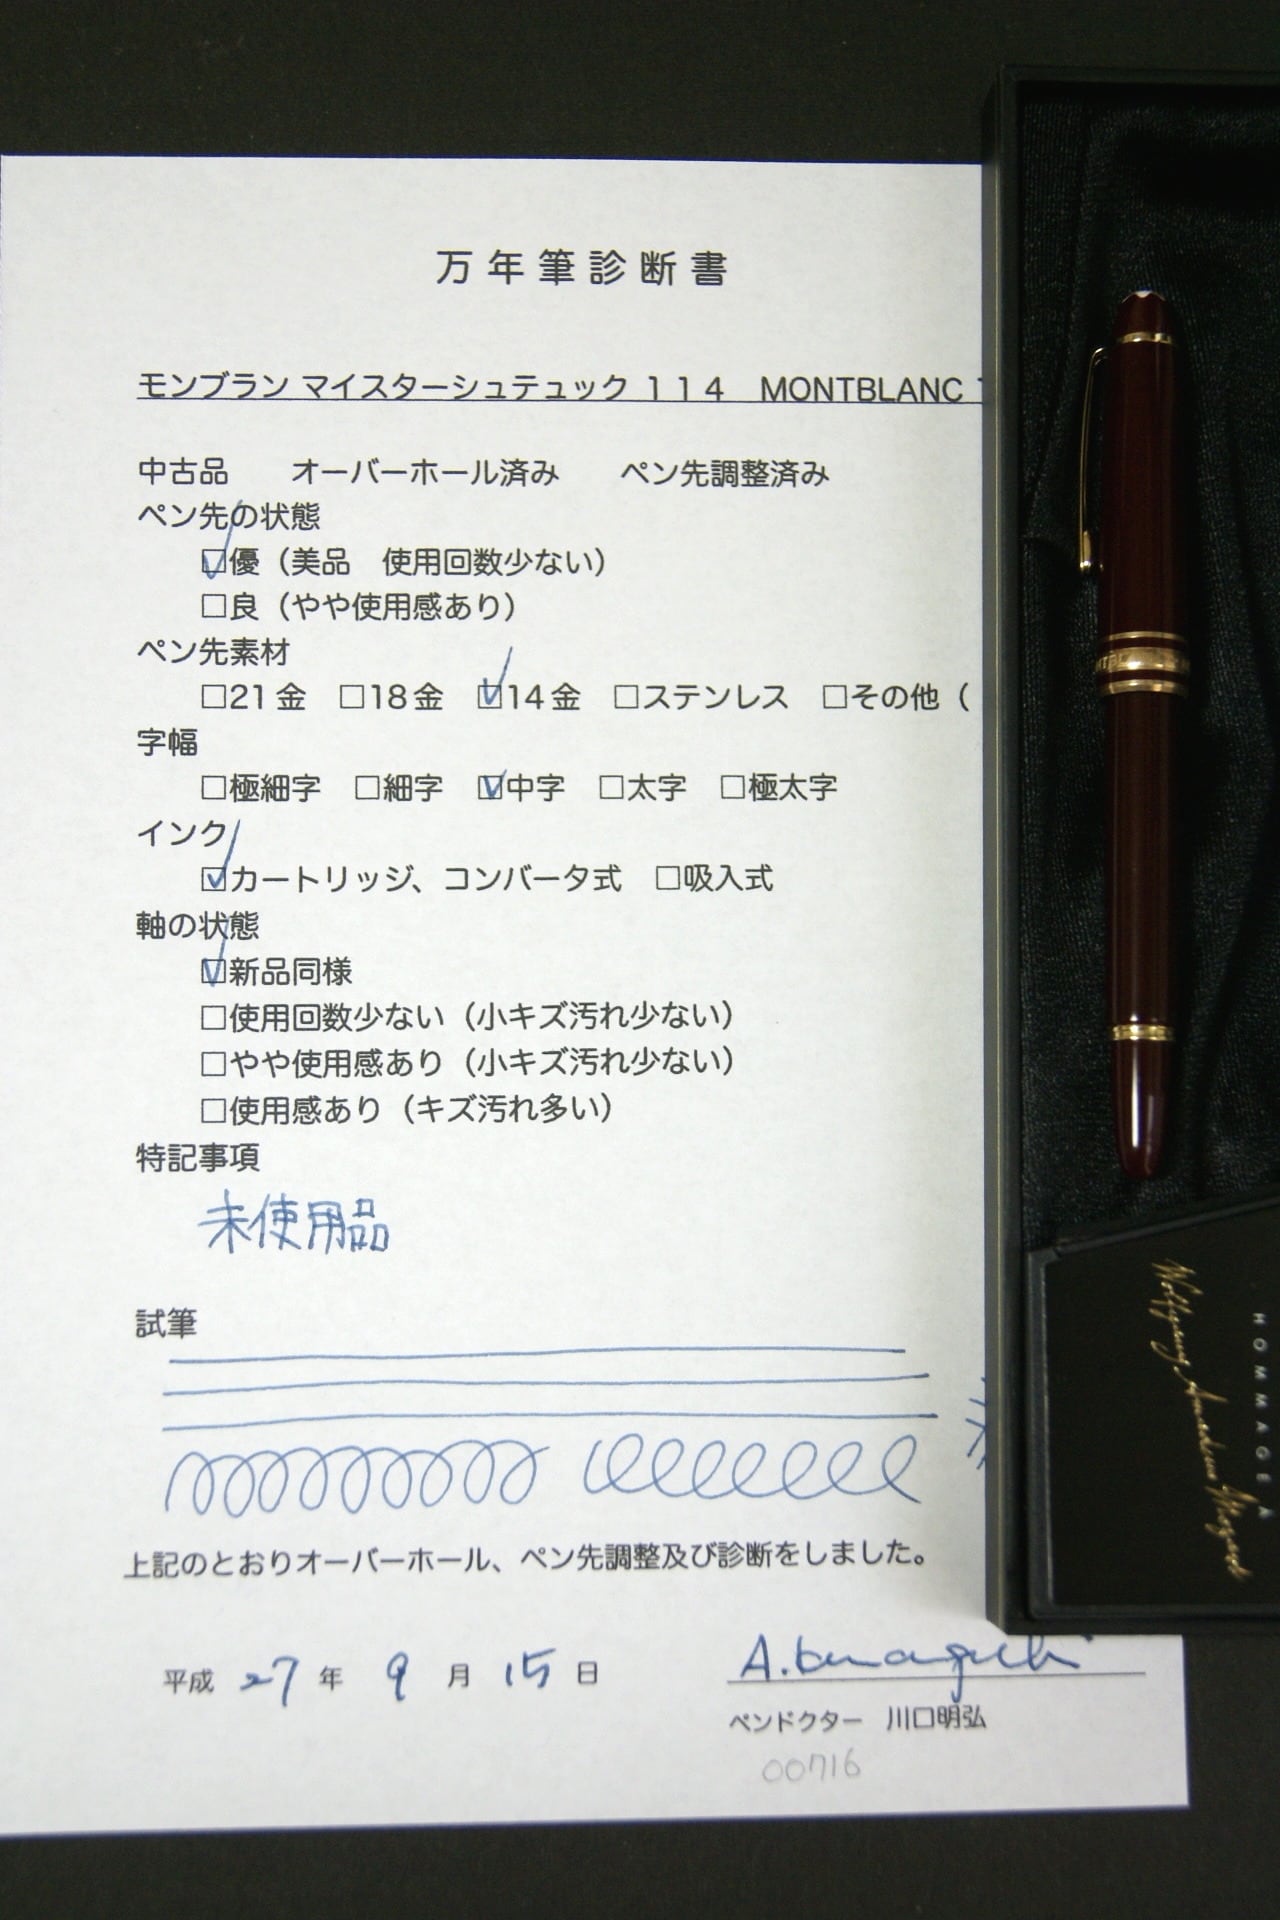 万年筆診断書
モンブラン マイスターシュテュック １１４　MONTBLANC
中古品　　オーバーホール済み　　ペン先調整済み
ペン先の状態
☑優（美品　使用回数少ない）
□良（やや使用感あり）
ペン先素材
□21金　□18金　☑14金　□ステンレス　□その他（
字幅
□極細字　□細字　☑中字　□太字　□極太字
インク
☑カートリッジ、コンバータ式　□吸入式
軸の状態
☑新品同様
□使用回数少ない（小キズ汚れ少ない）
□やや使用感あり（小キズ汚れ少ない）
□使用感あり（キズ汚れ多い）
特記事項
未使用品
試筆
上記のとおりオーバーホール、ペン先調整及び診断をしました。
平成 27 年 9 月 15 日
A.Kawaguchi
ペンドクター　川口明弘
00716
HOMMAGE À
Wolfgang Amadeus Mozart